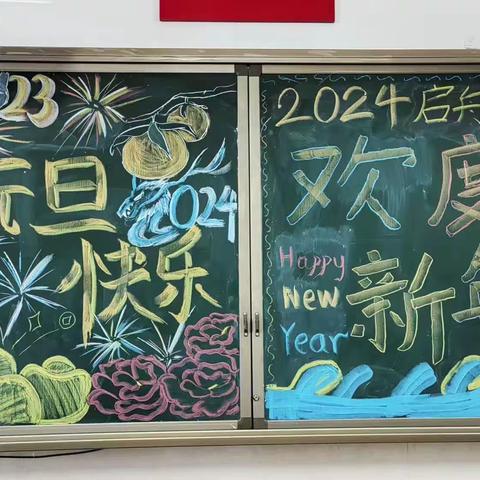 23
元旦
2024
快乐
2024 启
欢度
Happy
New
Year
新年